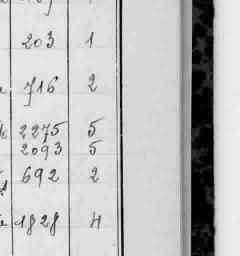 203 1
716 2
2275 5
2093 5
692 2
1828 4